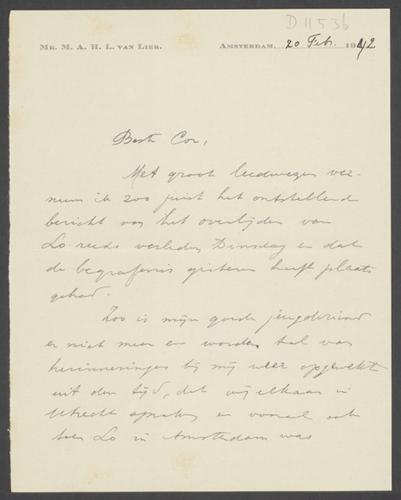 D 11536
MR. M. A. H. L. VAN LIER. AMSTERDAM, 20 Feb. 1942
Beste Cor,
Met groot leedwezen ver-
nam ik zoo juist het ontstellend
bericht van het overlijden van
Lo reeds verleden Dinsdag en dat
de begrafenis gisteren heeft plaats
gehad.
Zoo is mijn goede jeugdvriend
er niet meer en worden tal van
herinneringen bij mij weer opgewekt
uit den tijd, dat wij elkaar in
Utrecht spraken en vooral ook
toen Lo in Amsterdam was